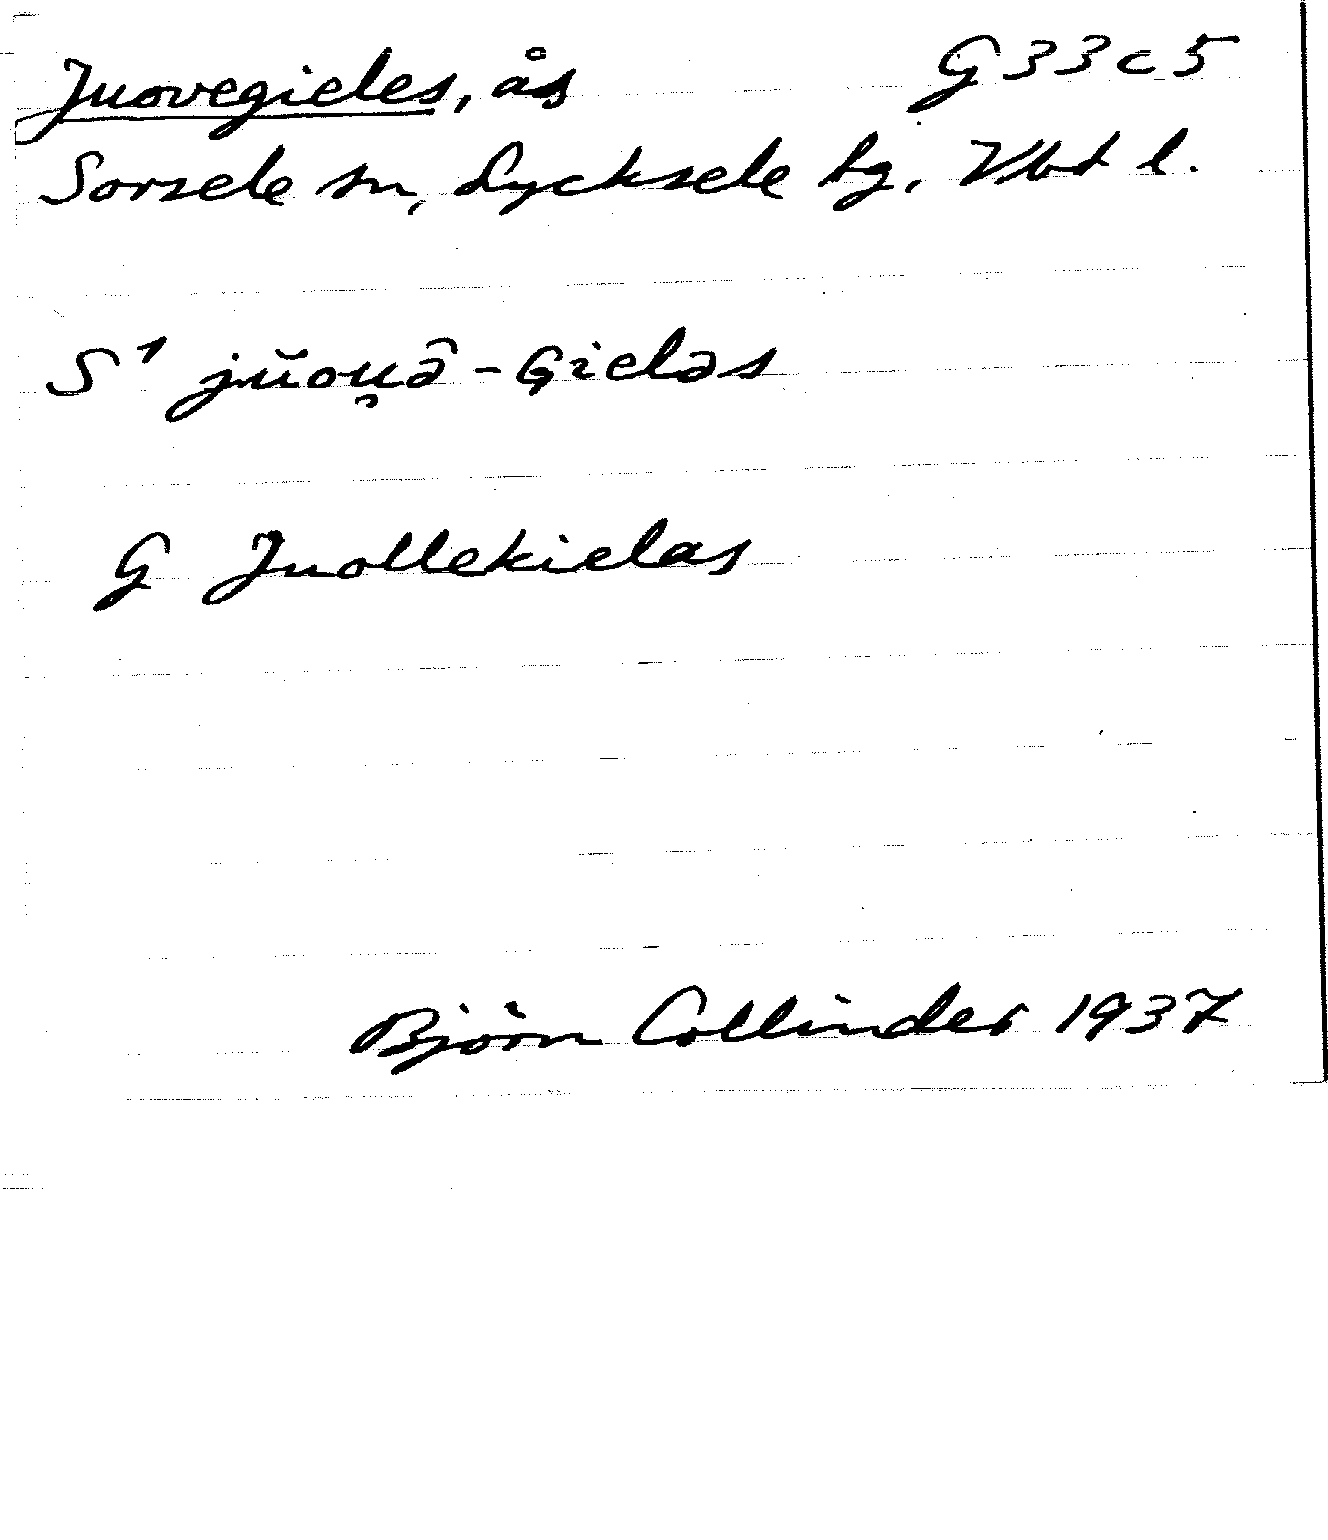 Juovegieles, ås G33c5
Sorsele sn, Lycksele lg, Vbt l.
S¹ jŭou̯â-Gieləs
G Juollekielas
Björn Collinder 1937